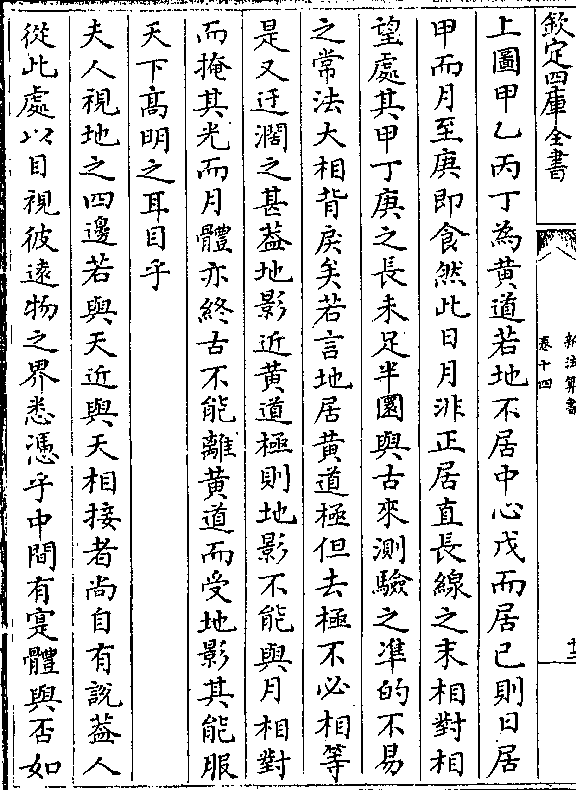 欽定四庫全書
新法算書
卷十四
十三
上圖甲乙丙丁為黄道若地不居中心戊而居已則日居
甲而月至庚即食然此日月非正居直長線之末相對相
望處其甲丁庚之長未足半圜與古來測驗之準的不易
之常法大相背戾矣若言地居黄道極但去極不必相等
是又迂濶之甚葢地影近黄道極則地影不能與月相對
而掩其光而月體亦終古不能離黄道而受地影其能服
天下髙明之耳目乎
夫人視地之四邊若與天近與天相接者尚自有說葢人
從此處以目視彼遠物之界悉憑乎中間有寔體與否如